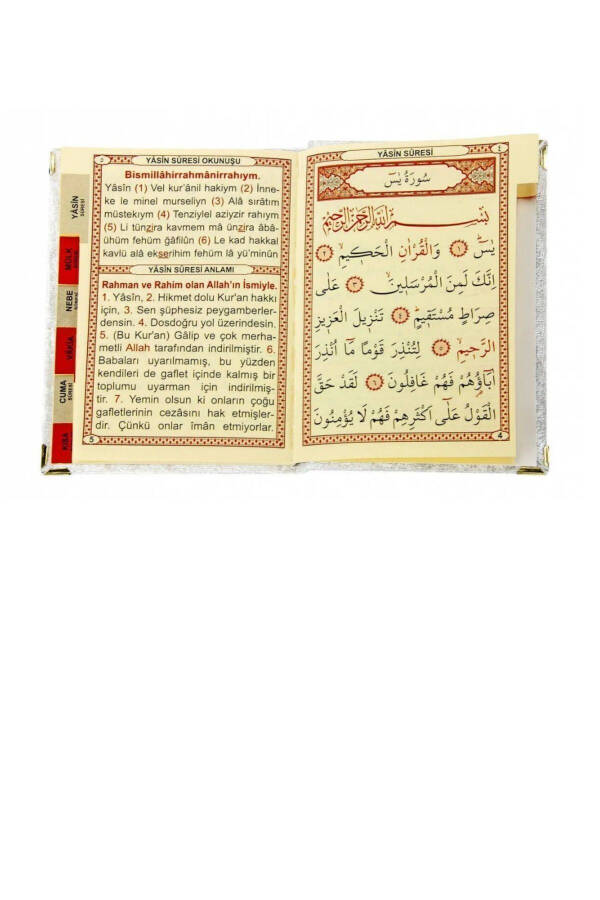 YÂSİN SÛRESİ
٤
سُورَةُ يٰسٓ
بِسْمِ اللّٰهِ الرَّحْمٰنِ الرَّحِيمِ
يٰسٓ ﴿١﴾ وَالْقُرْاٰنِ الْحَك۪يمِ ﴿٢﴾
اِنَّكَ لَمِنَ الْمُرْسَل۪ينَ ﴿٣﴾ عَلٰى
صِرَاطٍ مُسْتَق۪يمٍ ﴿٤﴾ تَنْز۪يلَ الْعَز۪يزِ
الرَّح۪يمِ ﴿٥﴾ لِتُنْذِرَ قَوْمًا مَٓا اُنْذِرَ
اٰبَٓاؤُ۬هُمْ فَهُمْ غَافِلُونَ ﴿٦﴾ لَقَدْ حَقَّ
الْقَوْلُ عَلٰٓى اَكْثَرِهِمْ فَهُمْ لَا يُؤْمِنُونَ
4
٥
YÂSİN SÛRESİ OKUNUŞU
Bismillâhirrahmânirrahıym.
Yâsîn (1) Vel kur'ânil hakiym (2) İnne-
ke le minel murseliyn (3) Alâ sırâtım
müstekıym (4) Tenziylel aziyzir rahıym
(5) Li tünzira kavmem mâ ünzira âbâ-
ühüm fehüm ğâfilûn (6) Le kad hakkal
kavlü alâ ekserihim fehüm lâ yü'minûn
YÂSİN SÛRESİ ANLAMI
Rahman ve Rahim olan Allah'ın İsmiyle.
1. Yâsîn, 2. Hikmet dolu Kur'an hakkı
için, 3. Sen şüphesiz peygamberler-
densin. 4. Dosdoğru yol üzerindesin.
5. (Bu Kur'an) Gâlip ve çok merha-
metli Allah tarafından indirilmiştir. 6.
Babaları uyarılmamış, bu yüzden
kendileri de gaflet içinde kalmış bir
toplumu uyarman için indirilmiş-
tir. 7. Yemin olsun ki onların çoğu
gafletlerinin cezâsını hak etmişler-
dir. Çünkü onlar îmân etmiyorlar.
5
YÂSİN
SÛRESİ
MÜLK
NEBE
VÂKIA
CUMA
SÛRESİ
KISA